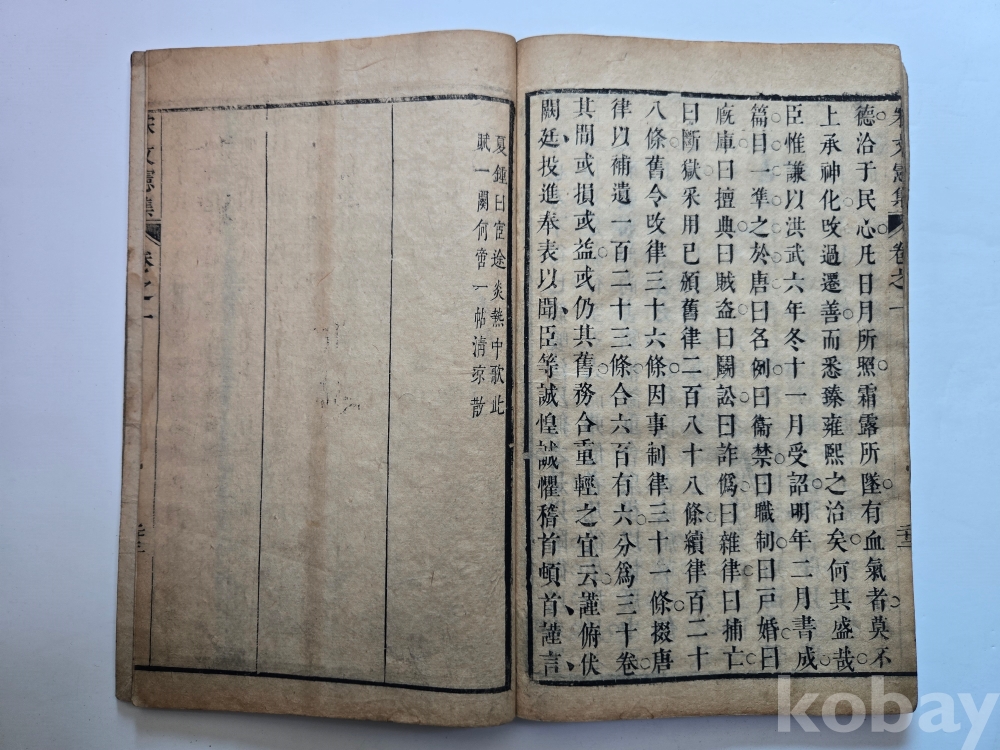 宋文憲集 卷之一 二十二
德洽于民心凡日月所照霜露所墜有血氣者莫不
上承神化改過遷善而悉臻雍熙之治矣何其盛哉
臣惟謙以洪武六年冬十一月受詔明年二月書成
篇目一準之於唐曰名例曰衞禁曰職制曰戸婚曰
廐庫曰擅典曰賊盜曰鬬訟曰詐僞曰雜律曰捕亡
曰斷獄采用已頒舊律二百八十八條續律百二十
八條舊令改律三十六條因事制律三十一條掇唐
律以補遺一百二十三條合六百有六分爲三十卷
其間或損或益或仍其舊務合重輕之宜云謹俯伏
闕廷投進奉表以聞臣等誠惶誠懼稽首頓首謹言
夏鍾曰宦途炎熱中歌此
賦一闋何啻一帖淸凉散
宋文憲集 卷之一
kobay